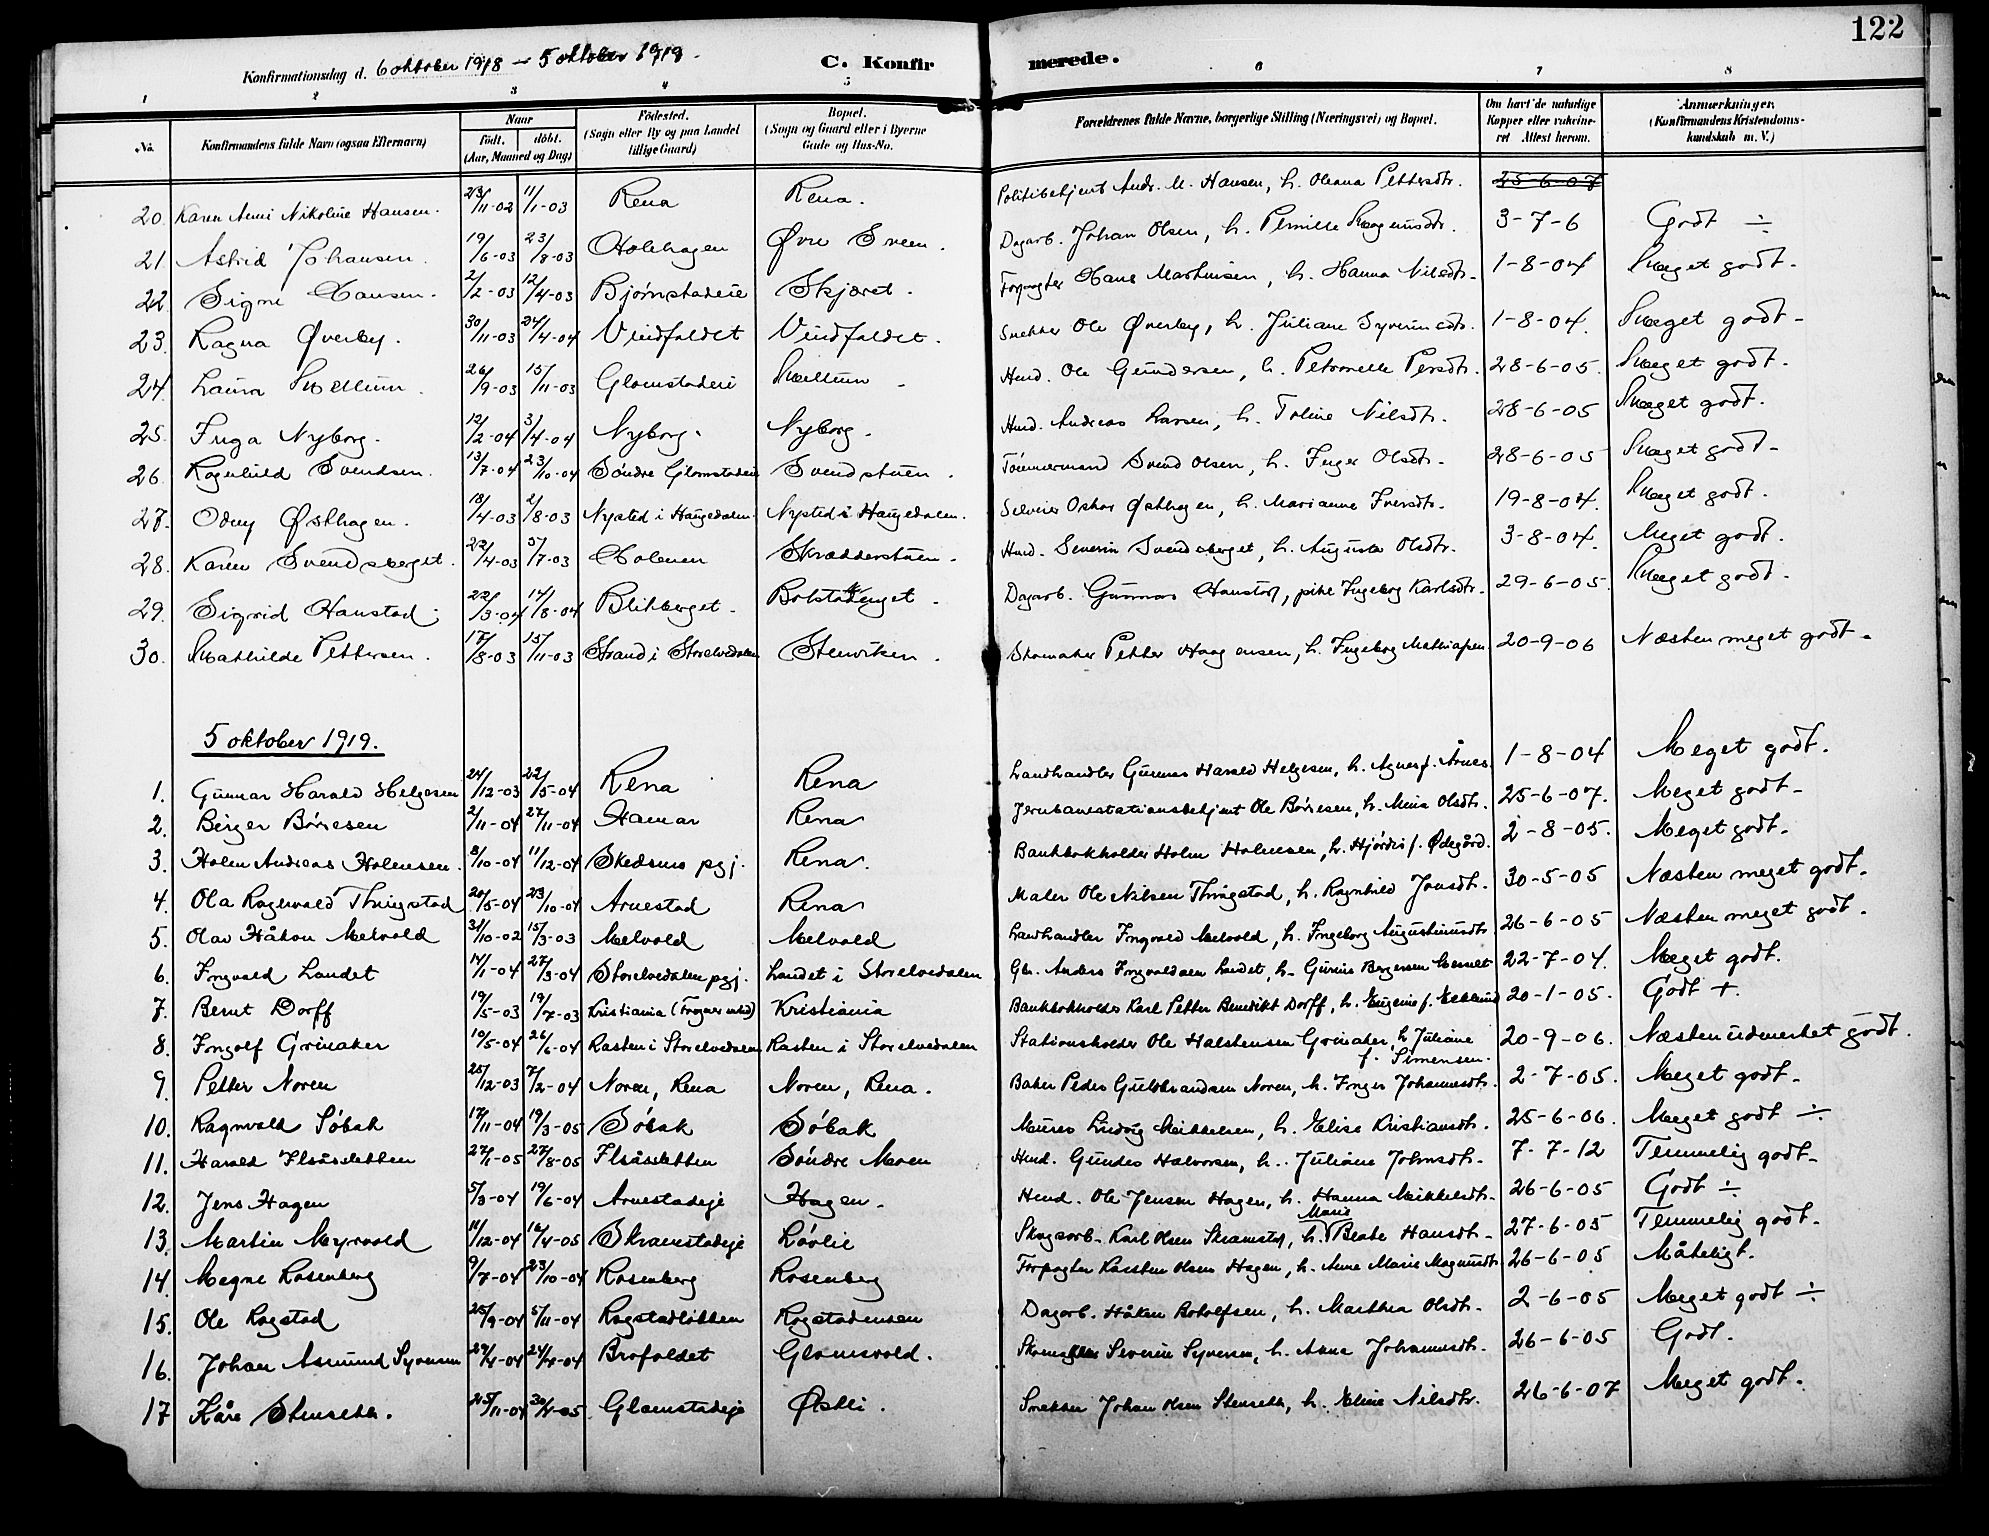 122
Konfirmationsdag d. 6 oktober 1918 – 5 oktober 1919. C. Konfirmerede.
1 2 3 4 5 6 7 8
No. Konfirmandens fulde Navn (ogsaa Efternavn) Naar Födt. döbt. (Aar, Maaned og Dag) Födested. (Sogn eller By og paa Landet tillige Gaard) Bopæl. (Sogn og Gaard eller i Byerne Gade og Hus-No. Forældrenes fulde Navne, borgerlige Stilling (Næringsvei) og Bopæl. Om havt de naturlige Kopper eller vaccineret Attest herom. Anmærkninger. (Konfirmandens Kristendomskundskab m. V.)
20. Karen Anni Nikoline Hansen. 23/11-02 11/1-03 Rena Rena. Politibetjent Andr. M. Hansen, h. Oleana Pettersdtr. 25-6-07
21. Astrid Johansen. 19/6-03 23/8-03 Holehagen Øvre Sveen. Dagarb. Johan Olsen, h. Pernille Magnusdtr. 3-7-6 Godt ÷
22 Signe Hansen. 2/2-03 12/4-03 Bjørnstadeie Skjæret. Forpagter Hans Martinsen, h. Hanna Nilsdtr. 1-8-04 Meget godt.
23. Ragna Øverby. 30/11-03 24/4-04 Vindfaldet Vindfaldet. Snekker Ole Øverby, h. Juliane Syverinsdtr. 1-8-04. Meget godt.
24. Laura Mellum. 26/9-03 15/11-03 Glomstadeie Mellum Husd. Ole Gundersen, h. Petronelle Persdtr. 28-6-05. Meget godt.
25. Inga Nyborg. 12/2-04 3/4-04 Nyborg. Nyborg. Husd. Andreas Larsen, h. Toline Nilsdtr. 28-6-05 Meget godt.
26. Ragnhild Svendsen. 13/7-04 23/10-04 Söndre Glomstadeie Svendstuen. Tömmermand Svend Olsen, h. Inger Olsdtr. 28-6-05 Meget godt.
27. Odny Østhagen. 18/4-03 2/8-03 Nysted i Haugedalen. Nysted i Haugedalen. Selveier Oskar Østhagen, h. Marianne Iversdtr. 19-8-04. Meget godt.
28. Karen Svendsberget. 22/4-03 5/7-03 Holmen Skrædderstuen. Husd. Severin Svendsberget, h. Augusta Olsdtr. 3-8-04. Meget godt.
29. Sigrid Hanstad. 22/3-04 14/8-04 Blikberget. Bolstadenget. Dagarb. Gunnar Hanstad, pike Ingeborg Karlsdtr. 29-6-05. Meget godt.
30. Mathilde Pettersen. 17/8-03 15/11-03 Strand i Storelvedalen Stenviken. Skomaker Petter Haagensen, h. Ingeborg Mathiassen 20-9-06 Næsten meget godt.
5 oktober 1919.
1. Gunnar Harald Helgesen 24/12-03 22/5-04 Rena Rena Landhandler Gunnar Harald Helgesen, h. Agnes f. Årnes. 1-8-04 Meget godt.
2. Birger Börresen 2/11-04 27/11-04 Hamar Rena Jernbanestationsbetjent Ole Börresen, h. Mina Olsdtr. 25-6-07. Meget godt.
3. Holm Andreas Holmsen. 8/10-04 11/12-04 Skedsmo pgj. Rena. Bankbokholder Holm Holmsen, h. Hjördis f. Ødegård. 2-8-05. Meget godt.
4. Ola Ragnvald Thingstad 20/5-04 23/10-04 Arnestad Rena Maler Ole Nilsen Thingstad, h. Ragnhild Jonsdtr. 30-5-05 Næsten meget godt.
5. Olav Håkon Melvold 31/10-02 15/3-03 Melvold Melvold Landhandler Ingvald Melvold, h. Ingeborg Augustinusdtr. 26-6-05 Næsten meget godt.
6. Ingvald Landet 14/1-04 27/3-04 Storelvedalen pgj. Landet i Storelvedalen Gbr. Anders Ingvaldsen Landet, h. Gurine Bergersen 22-7-04. Meget godt.
7. Bernt Dorff 19/5-03 19/7-03 Kristiania (Frogner) Kristiania Bankbokholder Karl Petter Benedikt Dorff, h. Eugenie f. Eklund 20-1-05. Godt +.
8. Ingolf Grinaker 10/5-04 26/6-04 Rasten i Storelvedalen Rasten i Storelvedalen Stationsholder Ole Halstensen Grinaker, h. Juliane f. Simensen. 20-9-06. Næsten udmerket godt.
9. Petter Noren 25/12-03 7/2-04 Noren, Rena Noren, Rena. Baker Peder Gulbrandsen Noren, h. Inger Johannesdtr. 2-7-05. Meget godt.
10. Ragnvald Söbak 17/11-04 19/3-05 Söbak Söbak Murer Ludvig Mikkelsen, h. Elise Kristiansdtr. 25-6-06. Meget godt ÷
11. Harald Ilsåsletten 27/1-05 27/8-05 Ilsåsletten Söndre Moen Husd. Gunder Halvorsen, h. Juliane Johnsdtr. 7-7-12 Temmelig godt.
12. Jens Hagen 5/3-04 19/6-04 Arnestadeje Hagen. Husd. Ole Jensen Hagen, h. Hanna Mikkelsdtr. 26-6-05 Godt ÷
13. Martin Myrvold 11/12-04 16/4-05 Skramstadeje Lövlie Skogsarb. Karl Olsen Skramstad, h. Marie Beate Hansdtr. 27-6-05 Temmelig godt.
14. Magne Rosenberg 9/7-04 23/10-04 Rosenberg Rosenberg Forpagter Karsten Olsen Hagen, h. Anne Marie Magnusdtr 26-6-05 Måteligt.
15. Ole Rogstad 25/9-04 6/11-04 Rogstadløkken Rogstadensen Dagarb. Håken Botolfsen, h. Marthea Olsdtr. 2-6-05 Meget godt ÷
16. Johan Asmund Syversen 29/4-04 24/4-04 Brofoldet Glomsvold. Severin Syversen, h. Anna Johannesdtr. 26-6-05 Godt.
17 Kåre Stenseth. 25/11-04 30/4-05 Glomstadeje Østli. Snekker Johan Olsen Stenseth, h. Eline Nilsdtr. 26-6-07 Meget godt.